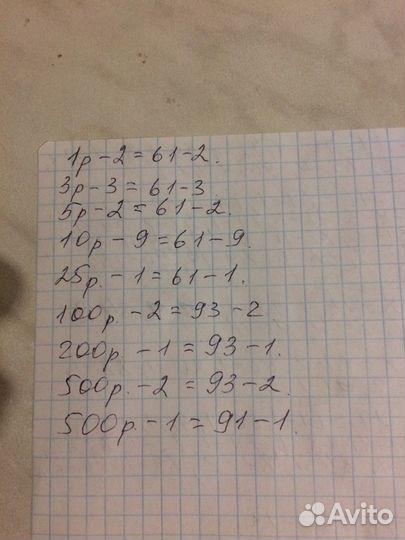 1р-2=61-2.
3р-3=61-3
5р-2=61-2.
10р-9=61-9.
25р.-1=61-1.
100р.-2=93-2
200р.-1=93-1.
500р.-2=93-2.
500р.-1=91-1.
Avito